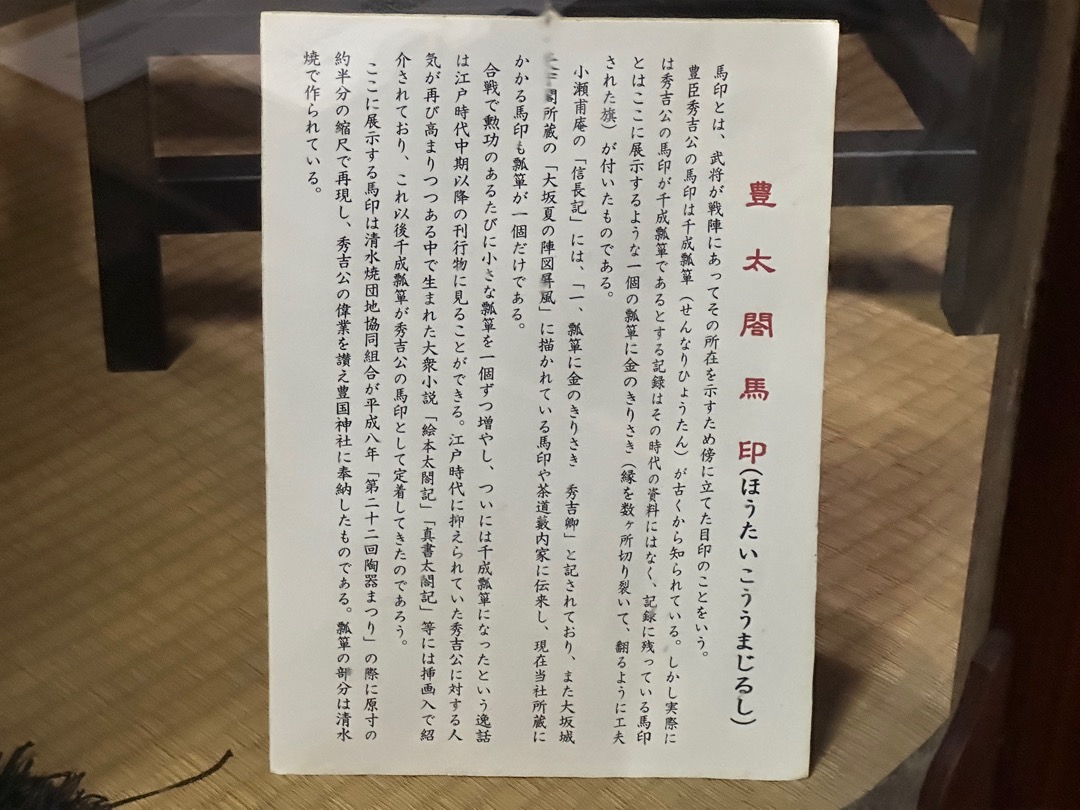 豊太閤馬印(ほうたいこううまじるし)
馬印とは、武将が戦陣にあってその所在を示すため傍に立てた目印のことをいう。
豊臣秀吉公の馬印は千成瓢箪(せんなりひょうたん)が古くから知られている。しかし実際に
は秀吉公の馬印が千成瓢箪であるとする記録はその時代の資料にはなく、記録に残っている馬印
とはここに展示するような一個の瓢箪に金のきりさき(縁を数ヶ所切り裂いて、翻るように工夫
された旗)が付いたものである。
小瀬甫庵の「信長記」には、「一、瓢箪に金のきりさき 秀吉卿」と記されており、また大坂城
天守閣所蔵の「大坂夏の陣図屏風」に描かれている馬印や茶道藪内家に伝来し、現在当社所蔵に
かかる馬印も瓢箪が一個だけである。
合戦で勲功のあるたびに小さな瓢箪を一個ずつ増やし、ついには千成瓢箪になったという逸話
は江戸時代中期以降の刊行物に見ることができる。江戸時代に抑えられていた秀吉公に対する人
気が再び高まりつつある中で生まれた大衆小説「絵本太閤記」「真書太閤記」等には挿画入で紹
介されており、これ以後千成瓢箪が秀吉公の馬印として定着してきたのであろう。
ここに展示する馬印は清水焼団地協同組合が平成八年「第二十二回陶器まつり」の際に原寸の
約半分の縮尺で再現し、秀吉公の偉業を讃え豊国神社に奉納したものである。瓢箪の部分は清水
焼で作られている。